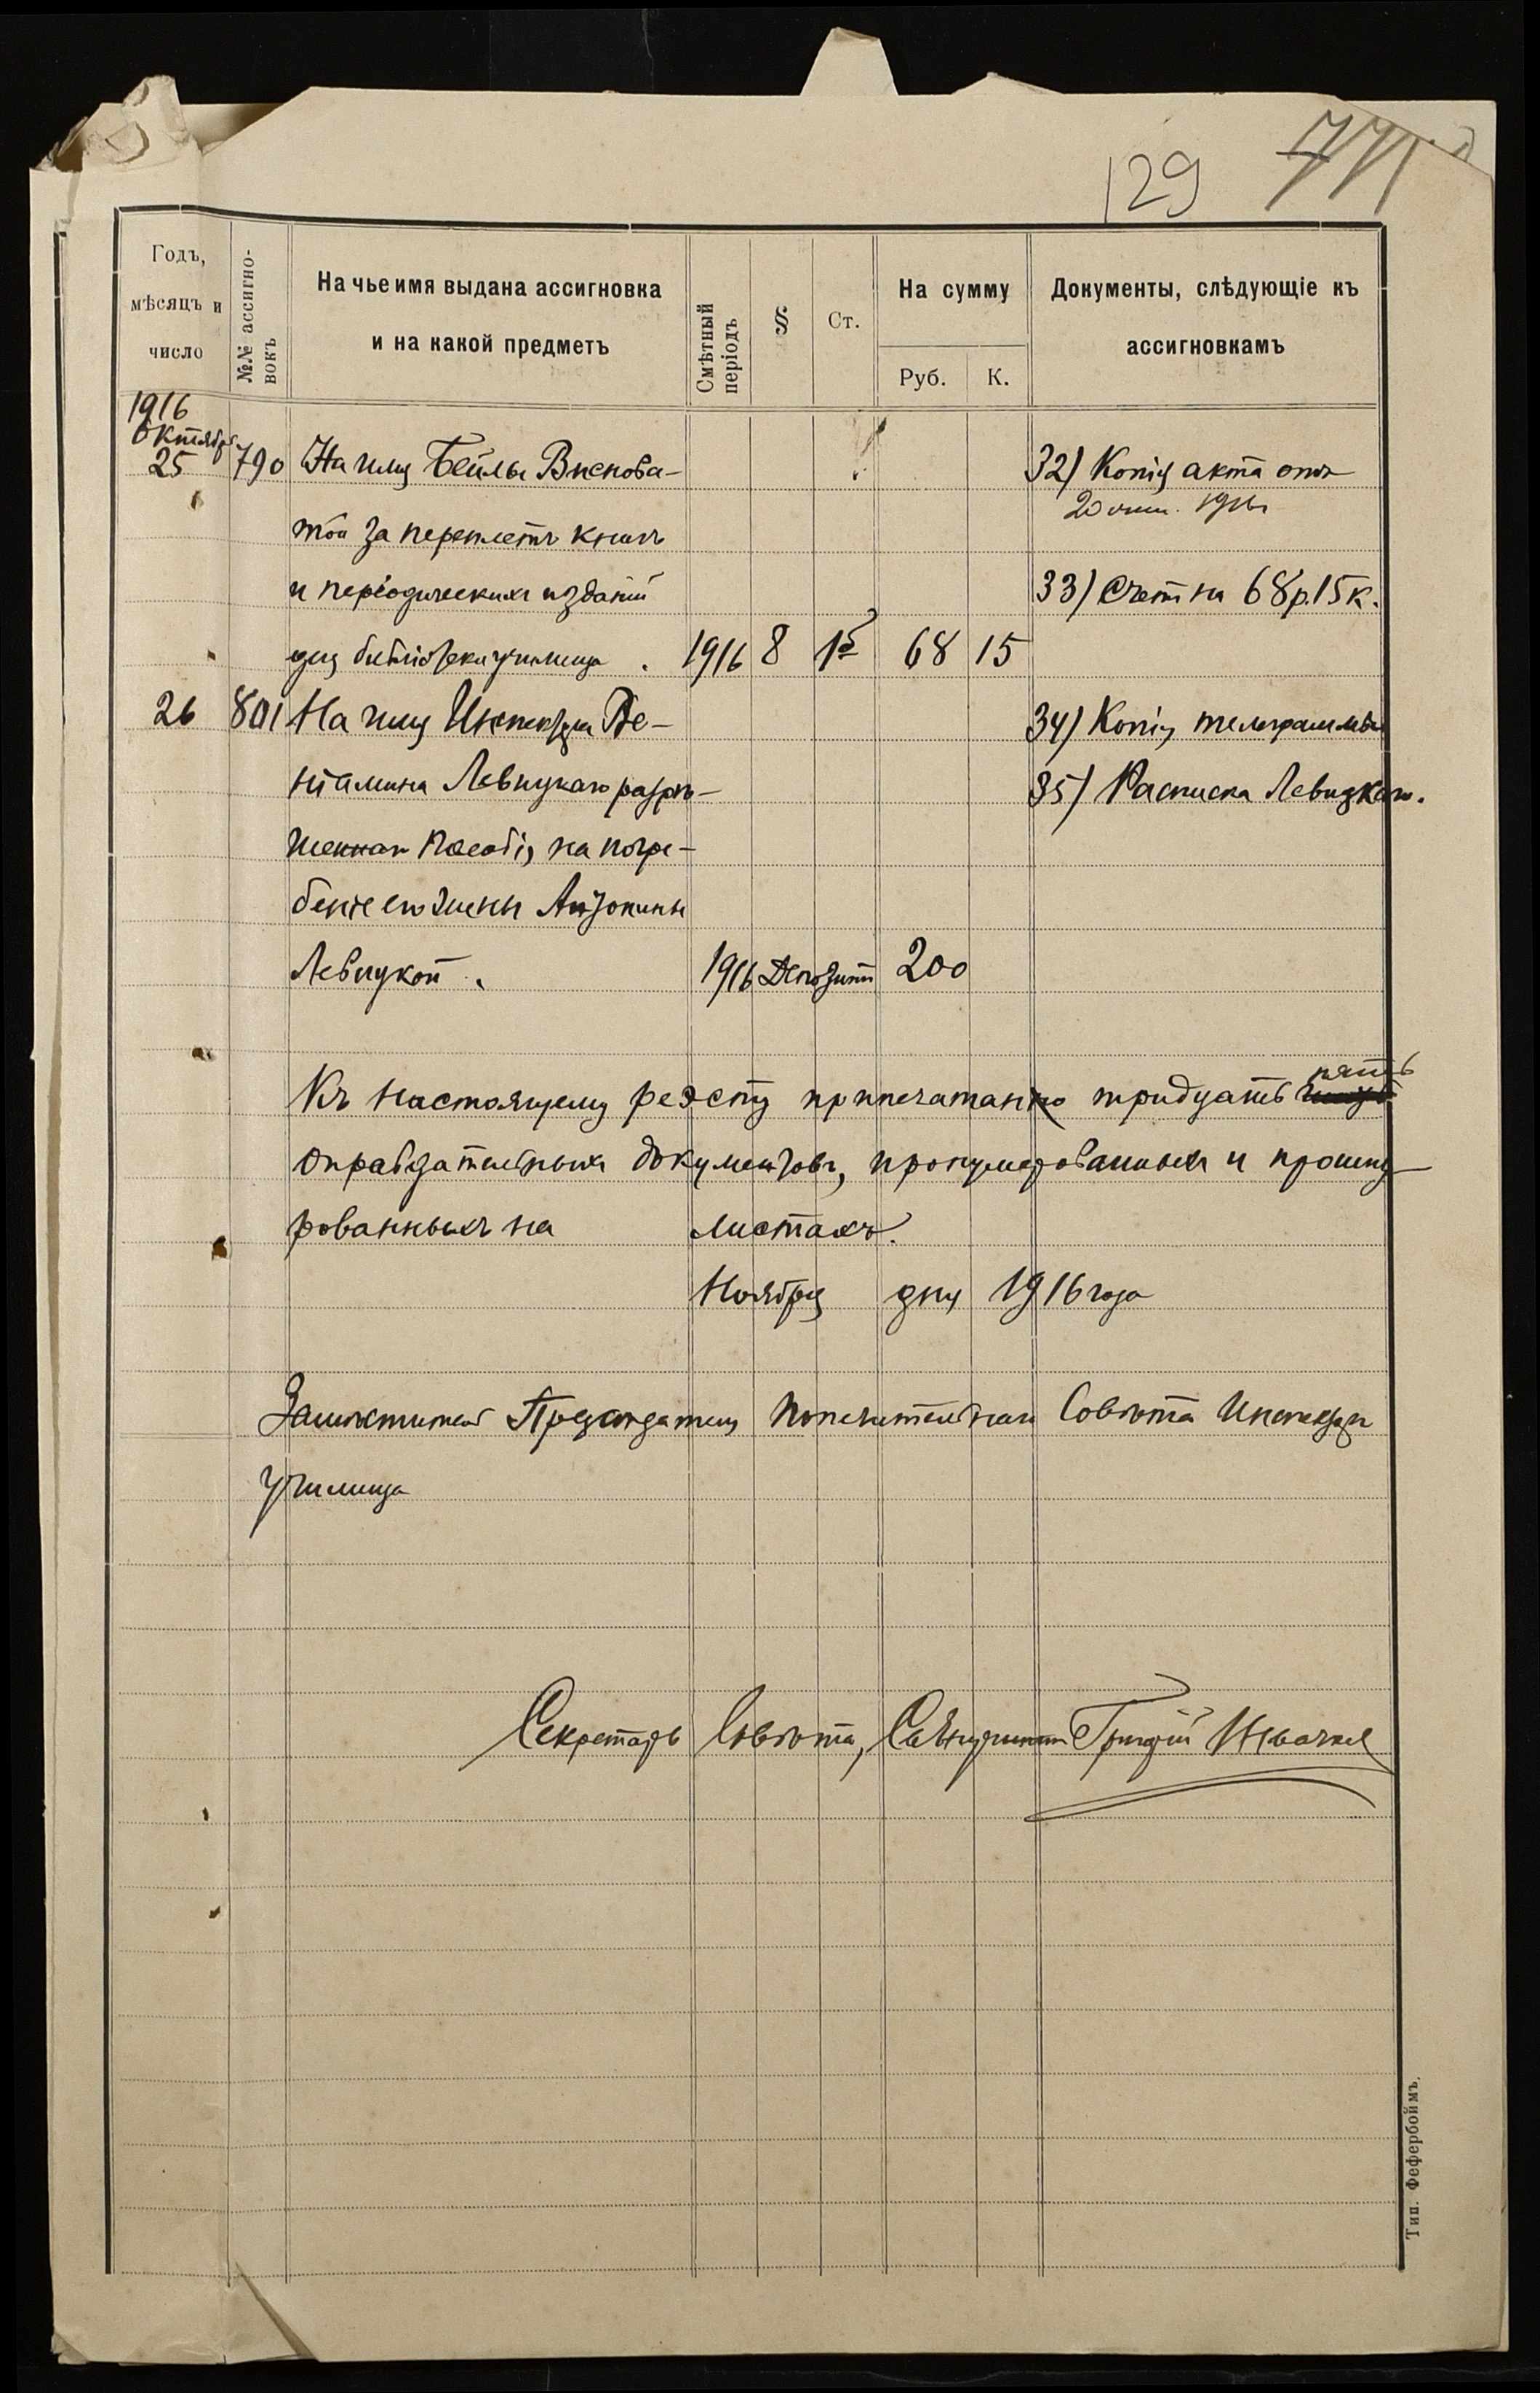 129 771
Годъ, мѣсяцъ и число
№№ ассигно-вокъ
На чье имя выдана ассигновка
и на какой предметъ
Смѣтный періодъ
§
Ст.
На сумму
Руб. К.
Документы, слѣдующіе къ
ассигновкамъ
1916
Октября
25 790 На имя Бейлы Вискова- 32) Копія акта отъ
20 окт. 1916 г
той за переплетъ книгъ
и періодическихъ изданій 33) Счетъ на 68 р. 15 к.
для библіотеки училища . 1916 8 1 68 15
26 801 На имя Инспектора Ве- 34) Копія телеграммы
ніамина Левицкаго разрѣ- 35) Расписка Левицкаго.
шеннаго пособія на погре-
беніе его жены Антонины
Левицкой. 1916 Депозит 200
Къ настоящему реэстру припечатано тридцать пять
оправдательныхъ документовъ, пронумерованныхъ и прошну-
рованныхъ на листахъ.
Ноября дня 1916 года
Заместитель Председателя Попечительнаго Совѣта Инспекторъ
Училища
Секретарь Совѣта, Священникъ Григорій
Тип. Фефербоймъ.